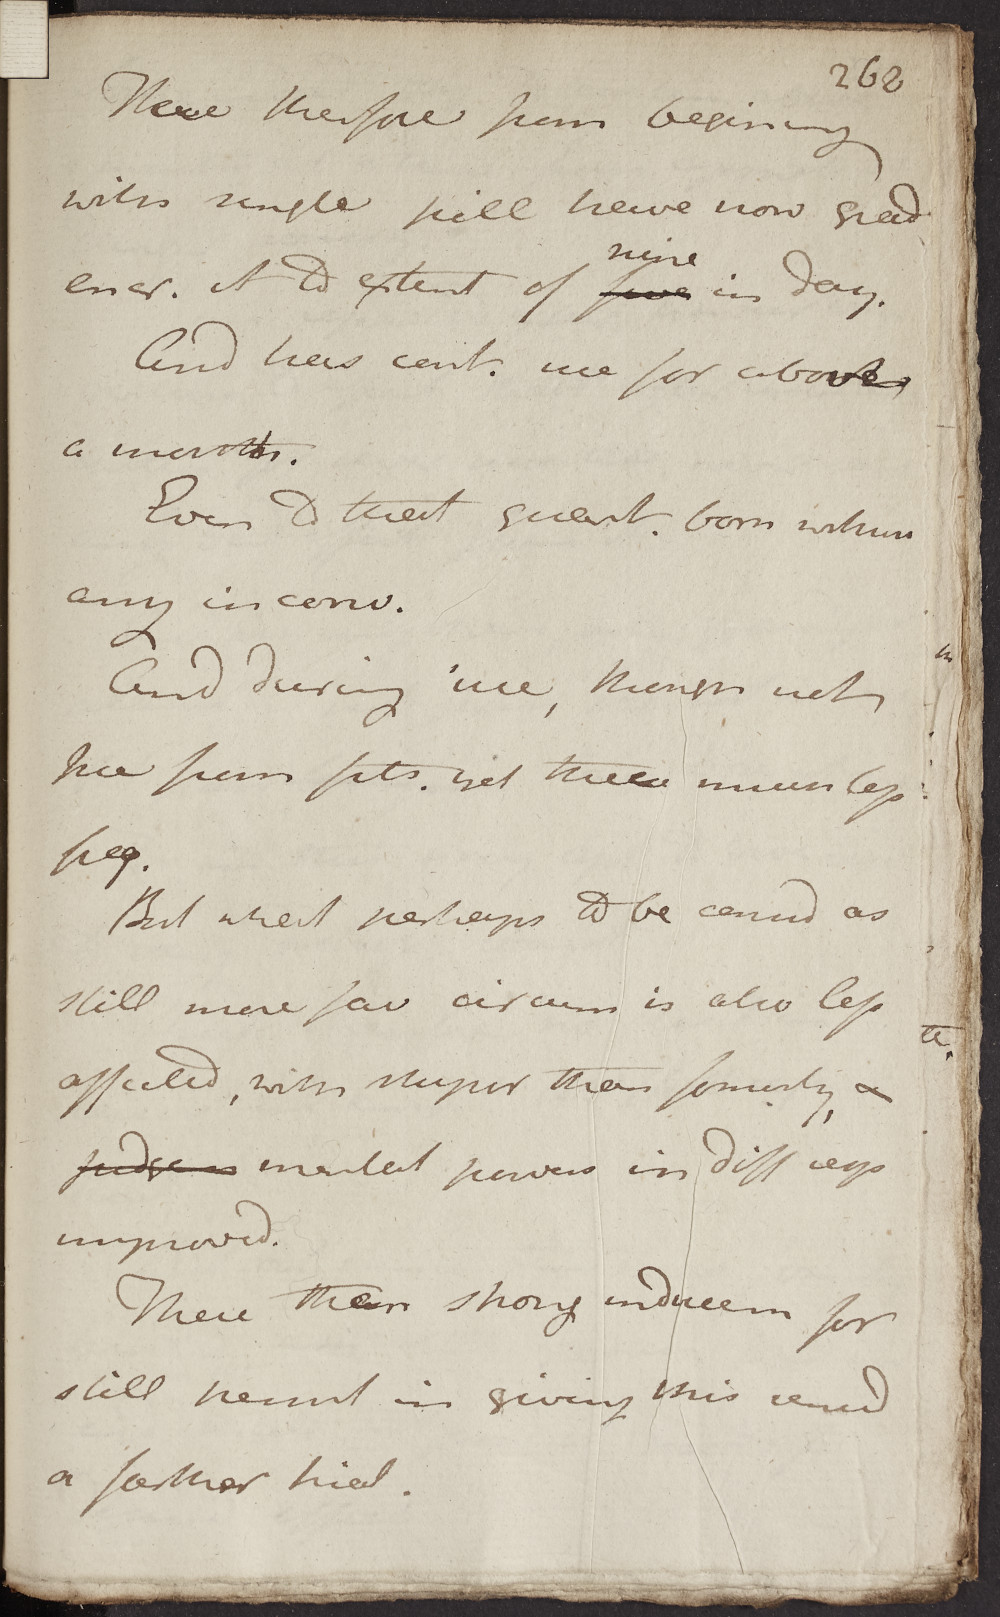 268
Have therefore from begining
with single pill have now grad
encr. it to extent of <del>five</del> nine in day.
And has cont. use for above
a month.
Even to that quant. born withou
any inconv.
And during use, though not
free from fits. yet these much less
freq.
But what perhaps to be consid as
still more fav circum is also less
affected, with stupor than formerly, &
<del>judgem</del> mental powers in diff resp
improved.
Have then strong inducem for
still persist in giving this remed
a farther trial.